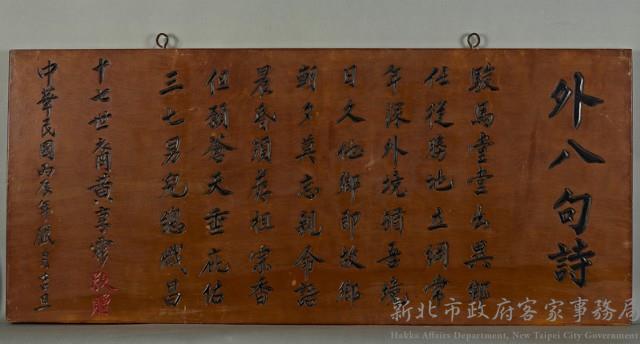 外八句詩
駿馬堂堂出異鄉
任從勝地立綱常
年深外境猶吾境
日久他鄉即故鄉
朝夕莫忘親命語
晨昏須薦祖宗香
但願蒼天垂庇佑
三七男兒總熾昌
十七世裔黃享 敬贈
中華民國丙辰年 月吉旦
新北市政府客家事務局
Hakka Affairs Department, New Taipei City Government